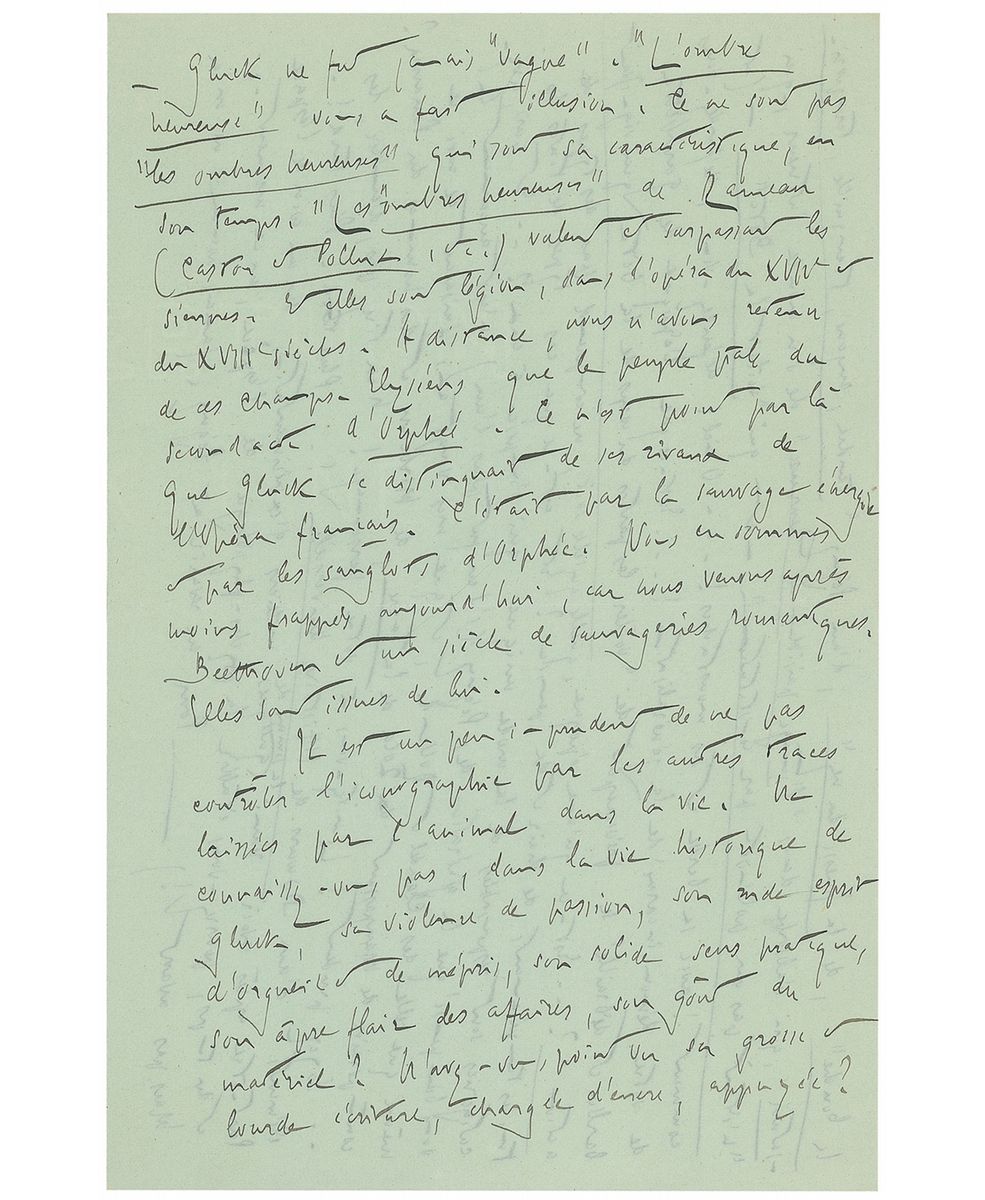 — Gluck ne fut jamais "vague". "L'ombre
heureuse" vous a fait illusion. Ce ne sont pas
"les ombres heureuses" qui sont sa caractéristique, en
son temps. "Les "ombres heureuses" de Rameau
(Castor et Pollux, etc.) valent et surpassent les
siennes. Et elles sont légion, dans l'opéra du XVIIe et
du XVIIIe siècles. A distance, nous n'avons retenu
de ces Champs-Elysiens que le peuple pâle du
second acte d'Orphée. Ce n'est point par là
que Gluck se distinguait de ses rivaux de
l'Opéra français. C'était par la sauvage énergie
et par les sanglots d'Orphée. Nous en sommes
moins frappés aujourd'hui, car nous venons après
Beethoven et un siècle de sauvageries romantiques.
Elles sont issues de lui.
Il est un peu imprudent de ne pas
contrôler l'iconographie par les autres traces
laissées par l'animal dans la vie. Ne
connaissez-vous pas, dans la vie historique de
Gluck, sa violence de passion, son rude esprit
d'orgueil et de mépris, son solide sens pratique,
son âpre flair des affaires, son goût du
matériel? N'avez-vous point vu sa grosse et
lourde écriture, chargée d'encre, appuyée?